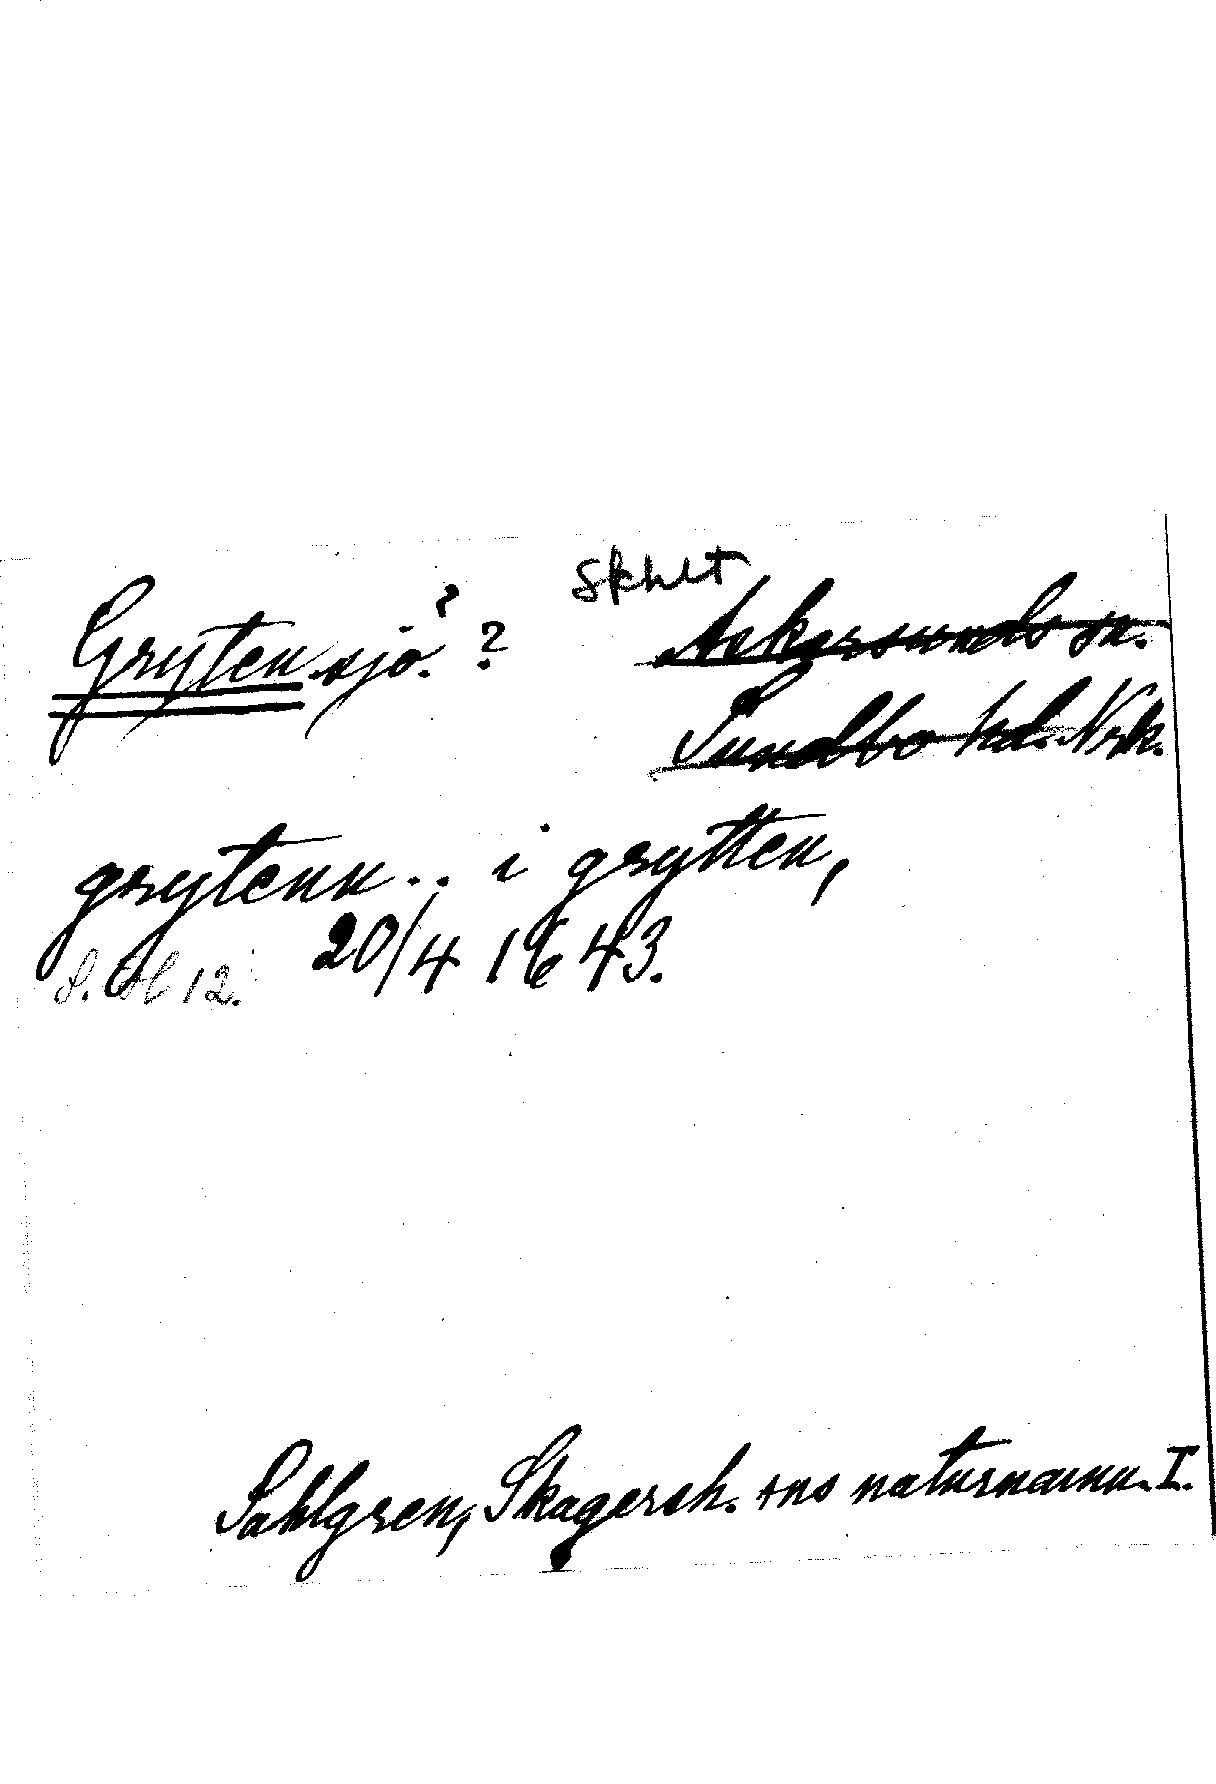 Skhlt
Gryten, sjö. ? ? Askersunds sn.
Sundbo hd. Nrk.
grytenn.. i grytten,
20/4 1643.
Sahlgren, Skagersh. sns naturnamn. I.